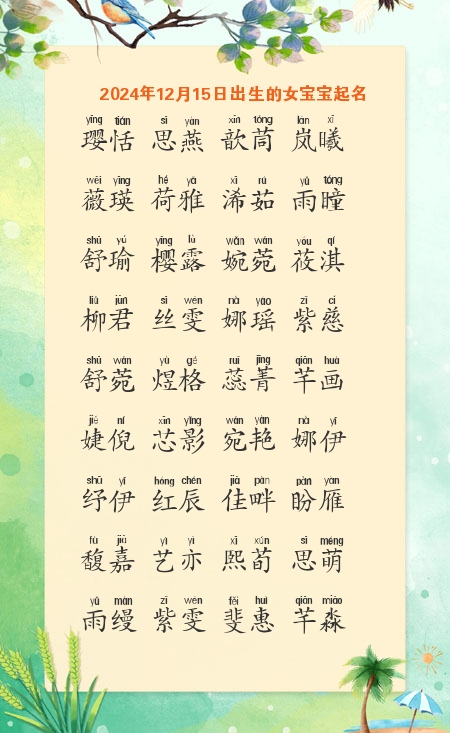 2024年12月15日出生的女宝宝起名
yīng tián sī yàn xīn tóng lán xī
璎恬 思燕 歆茼 岚曦
wēi yīng hé yǎ xī rú yǔ tóng
薇瑛 荷雅 浠茹 雨瞳
shū yú yīng lù wǎn wǎn yóu qí
舒瑜 樱露 婉菀 莜淇
liǔ jūn sī wén nà yáo zǐ cí
柳君 丝雯 娜瑶 紫慈
shū wǎn yù gé ruǐ jīng qiān huà
舒菀 煜格 蕊菁 芊画
jié ní xīn yǐng wǎn yàn nà yī
婕倪 芯影 宛艳 娜伊
shū yī hóng chén jiā pàn pàn yàn
纾伊 红辰 佳畔 盼雁
fù jiā yì yì xī xún sī méng
馥嘉 艺亦 熙荀 思萌
yǔ màn zǐ wén fěi huì qiān miǎo
雨缦 紫雯 斐惠 芊淼